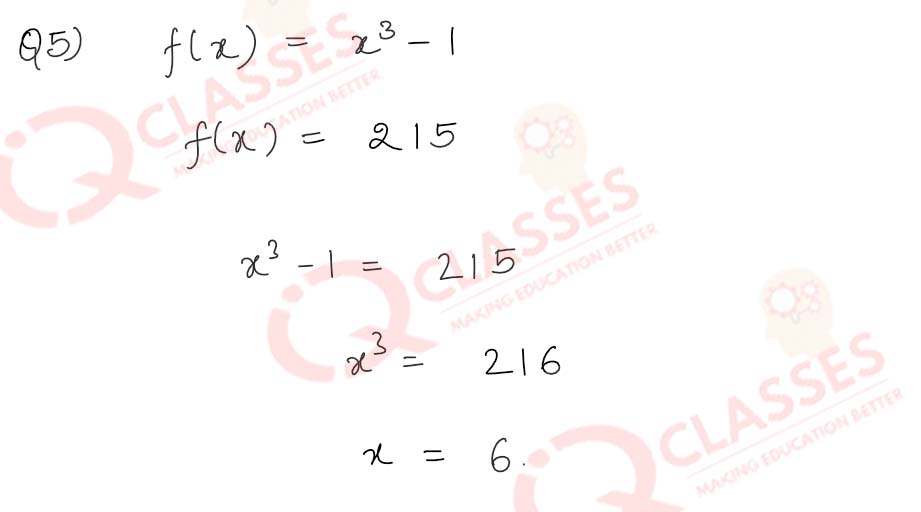 Q5) f(x) = x³ - 1
f(x) = 215
x³ - 1 = 215
x³ = 216
x = 6.
IQ CLASSES
MAKING EDUCATION BETTER
IQ CLASSES
MAKING EDUCATION BETTER
IQ CLASSES
MAKING EDUCATION BETTER